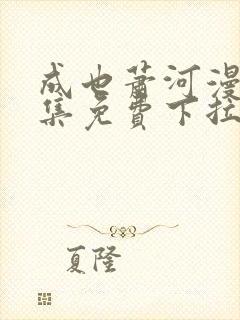 成也萧河漫
集免費下拉
夏隆